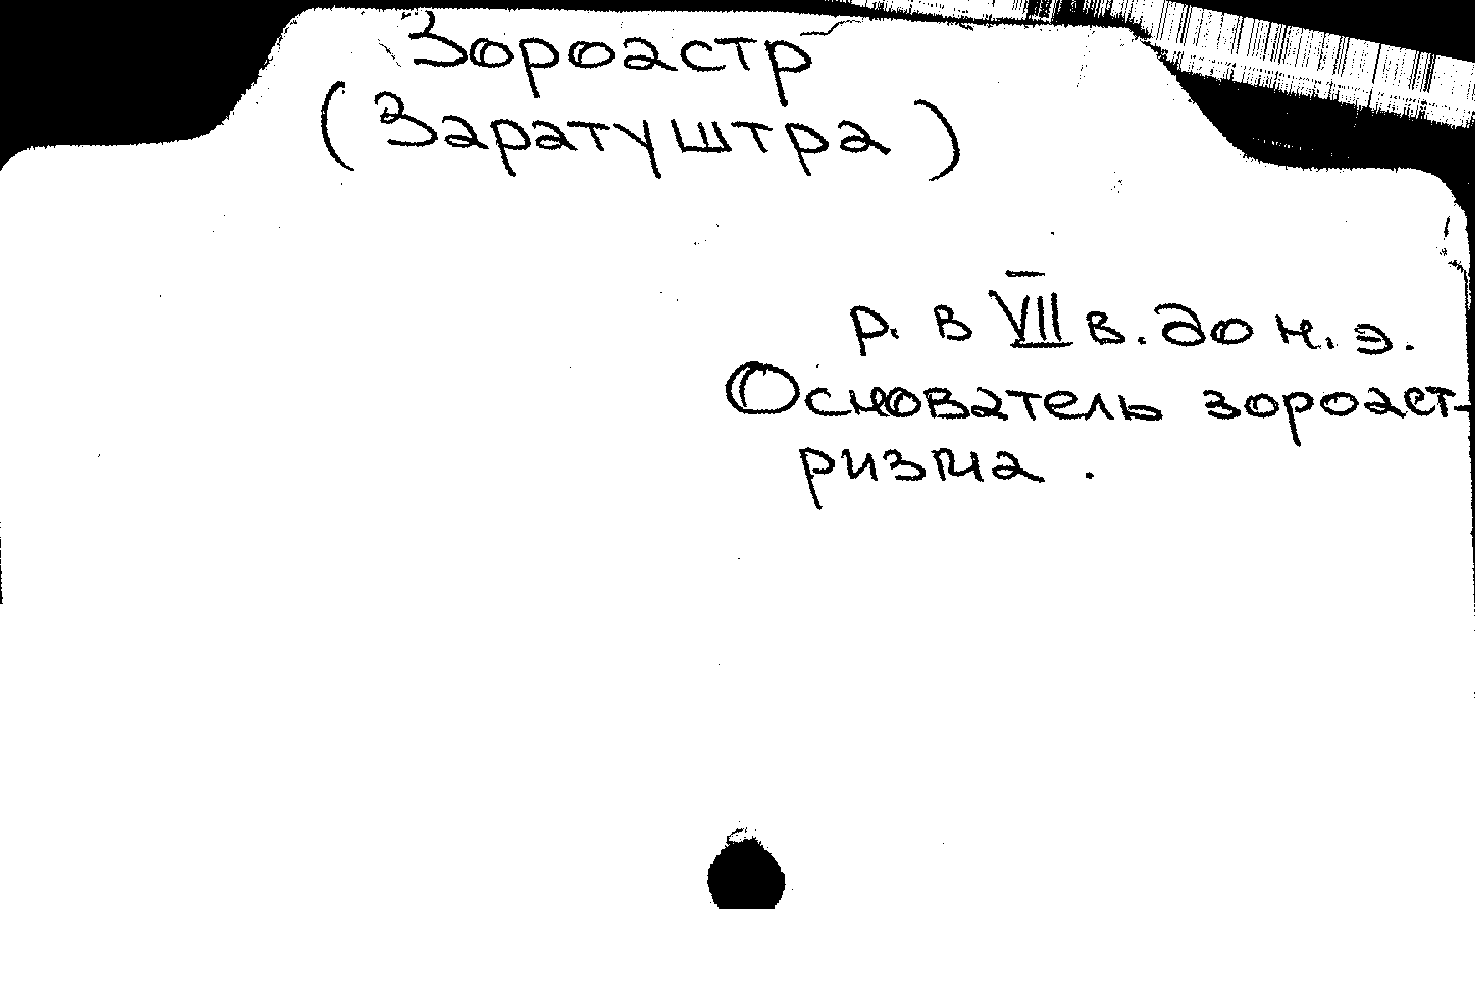 Зороастр
(Заратуштра)
р. в VII в. до н. э.
Основатель зороаст-
ризма.